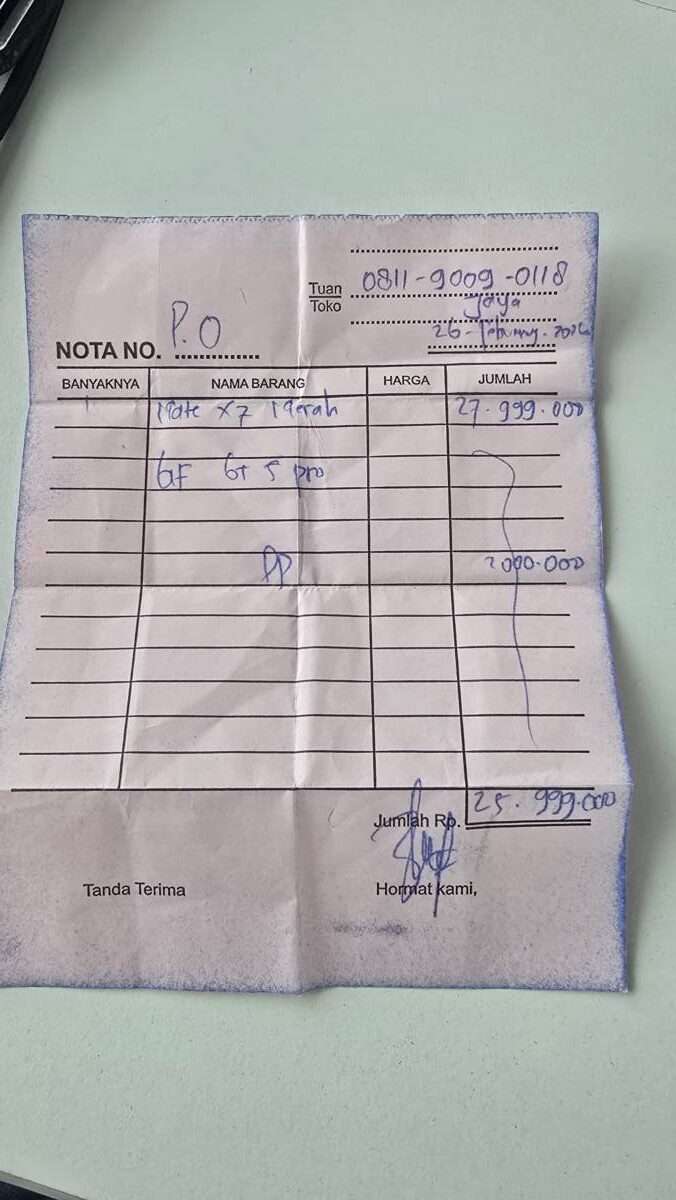 Tuan
Toko
0811-9009-0118
Jaya
26-February-2026
NOTA NO. P.O
BANYAKNYA NAMA BARANG HARGA JUMLAH
1 Mate X7 Merah 27.999.000
GF GT 5 pro
DP 2000.000
Jumlah Rp. 25.999.000
Tanda Terima Hormat kami,